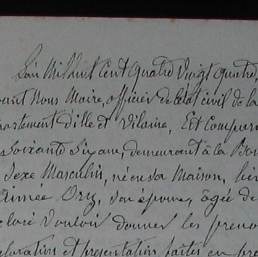 L'an Mil huit Cent quatre Vingt quatre,
Nous Maire, officier de l'état civil de la
d'ille et Vilaine, Est Compar
Soixante Six ans, demeurant à la
Sexe Masculin, né en sa Maison,
Aimée Ory, son épouse, âgée de
Vouloir donner les preno
et présentation faites en pre